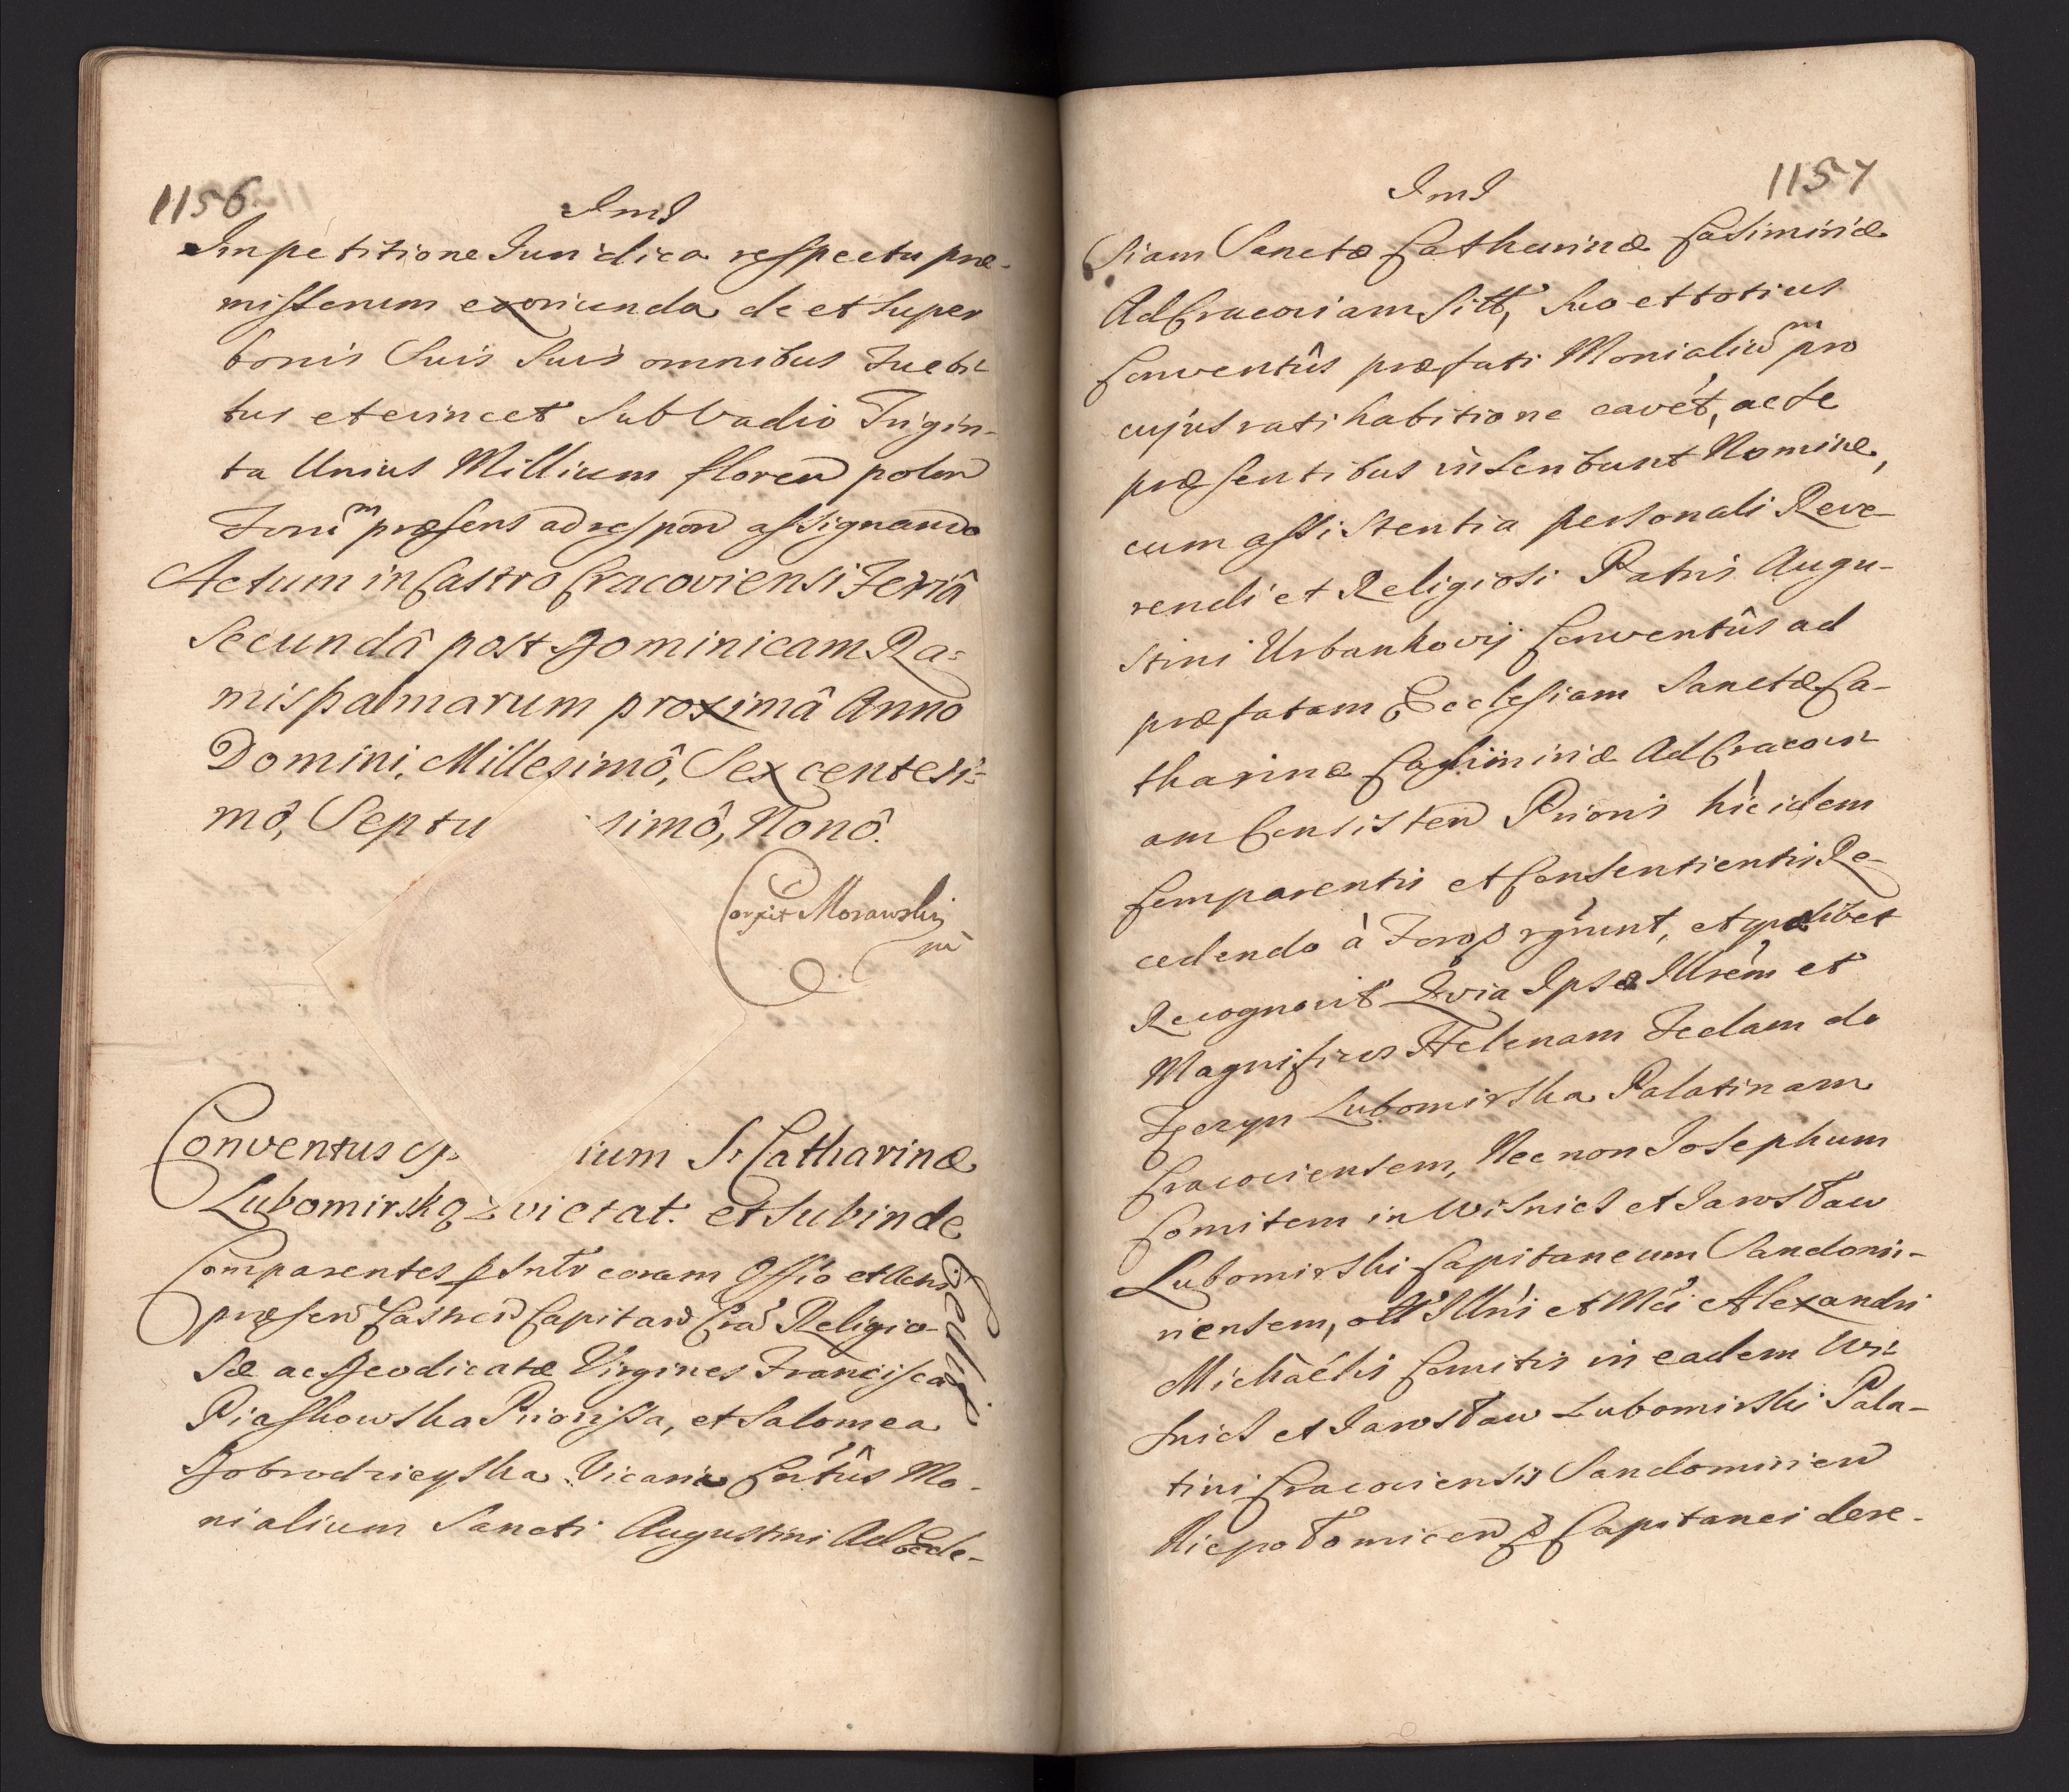 1156
JmJ
Impetitione Juridica respectu præ-
missorum exoriunda de et super
bonis Suis Suis omnibus Tuebi-
tur et evincet Sub Vadio Trigin-
ta Unius Millium floren polon
præsens ad respon assignando
Actum in Castro Cracoviensi Feriâ
Secundâ post Dominicam Ra=
mispalmarum proximâ Anno
Domini, Millesimô, Sexcentesi=
mô, Septu simô, Nonô.
Corrxit Morawskj
mp
Conventus ium S. Catharinæ
Lubomirską zvietat. et Subinde
Comparentes coram Offio et Actis
præsen Castren Capitan Cra Religio-
sæ ac Deodicatæ Virgines Francisca
Piaskowska Priorissa, et Salomea
Dobrodzieyska Vicaria Cntûs Mo-
nialium Sancti Augustini Ad Eccle-
1157
JmJ
Siam Sanctæ Catharinæ Casimiriæ
Ad Cracoviam Sitt, Suo et totius
Conventûs præfati Monialium pro
cujus ratihabitione cavet, ac se
præsentibus inscribunt Nomine,
cum assistentia personali Reve-
rendi et Religiosi Patris Augu-
stini Urbankovij Conventûs ad
præfatam Ecclesiam Sanctæ Ca-
tharinæ Casimiriæ Ad Cracovi-
am Consisten Prioris hic idem
Comparentis et Consentientis Re-
cedendo à Foro et quælibet
Recognovit Qvia Ipsæ Illrem et
Magnificos Helenam Teclam de
Lubomirska Palatinam
Cracoviensem, Nec non Josephum
Comitem in Wisnicz et Jarosław
Lubomirski Capitaneum Sandomi-
riensem, olt Illris et Mci Alexandri
Michaëlis Comitis in eadem Wi-
snicz et Jarosław Lubomirski Pala-
tini Cracoviensis Sandomirien
Niepołomicen Capitanei dere-